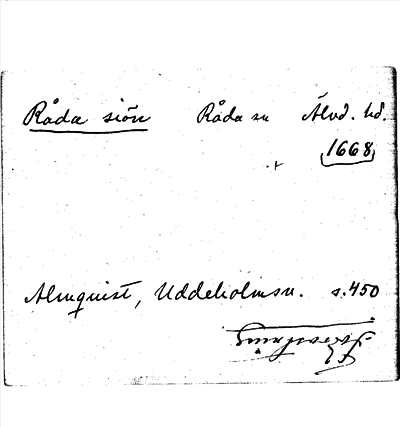 Råda siön Råda sn Älvd. hd.
1668
Almquist, Uddeholmsn. s. 450